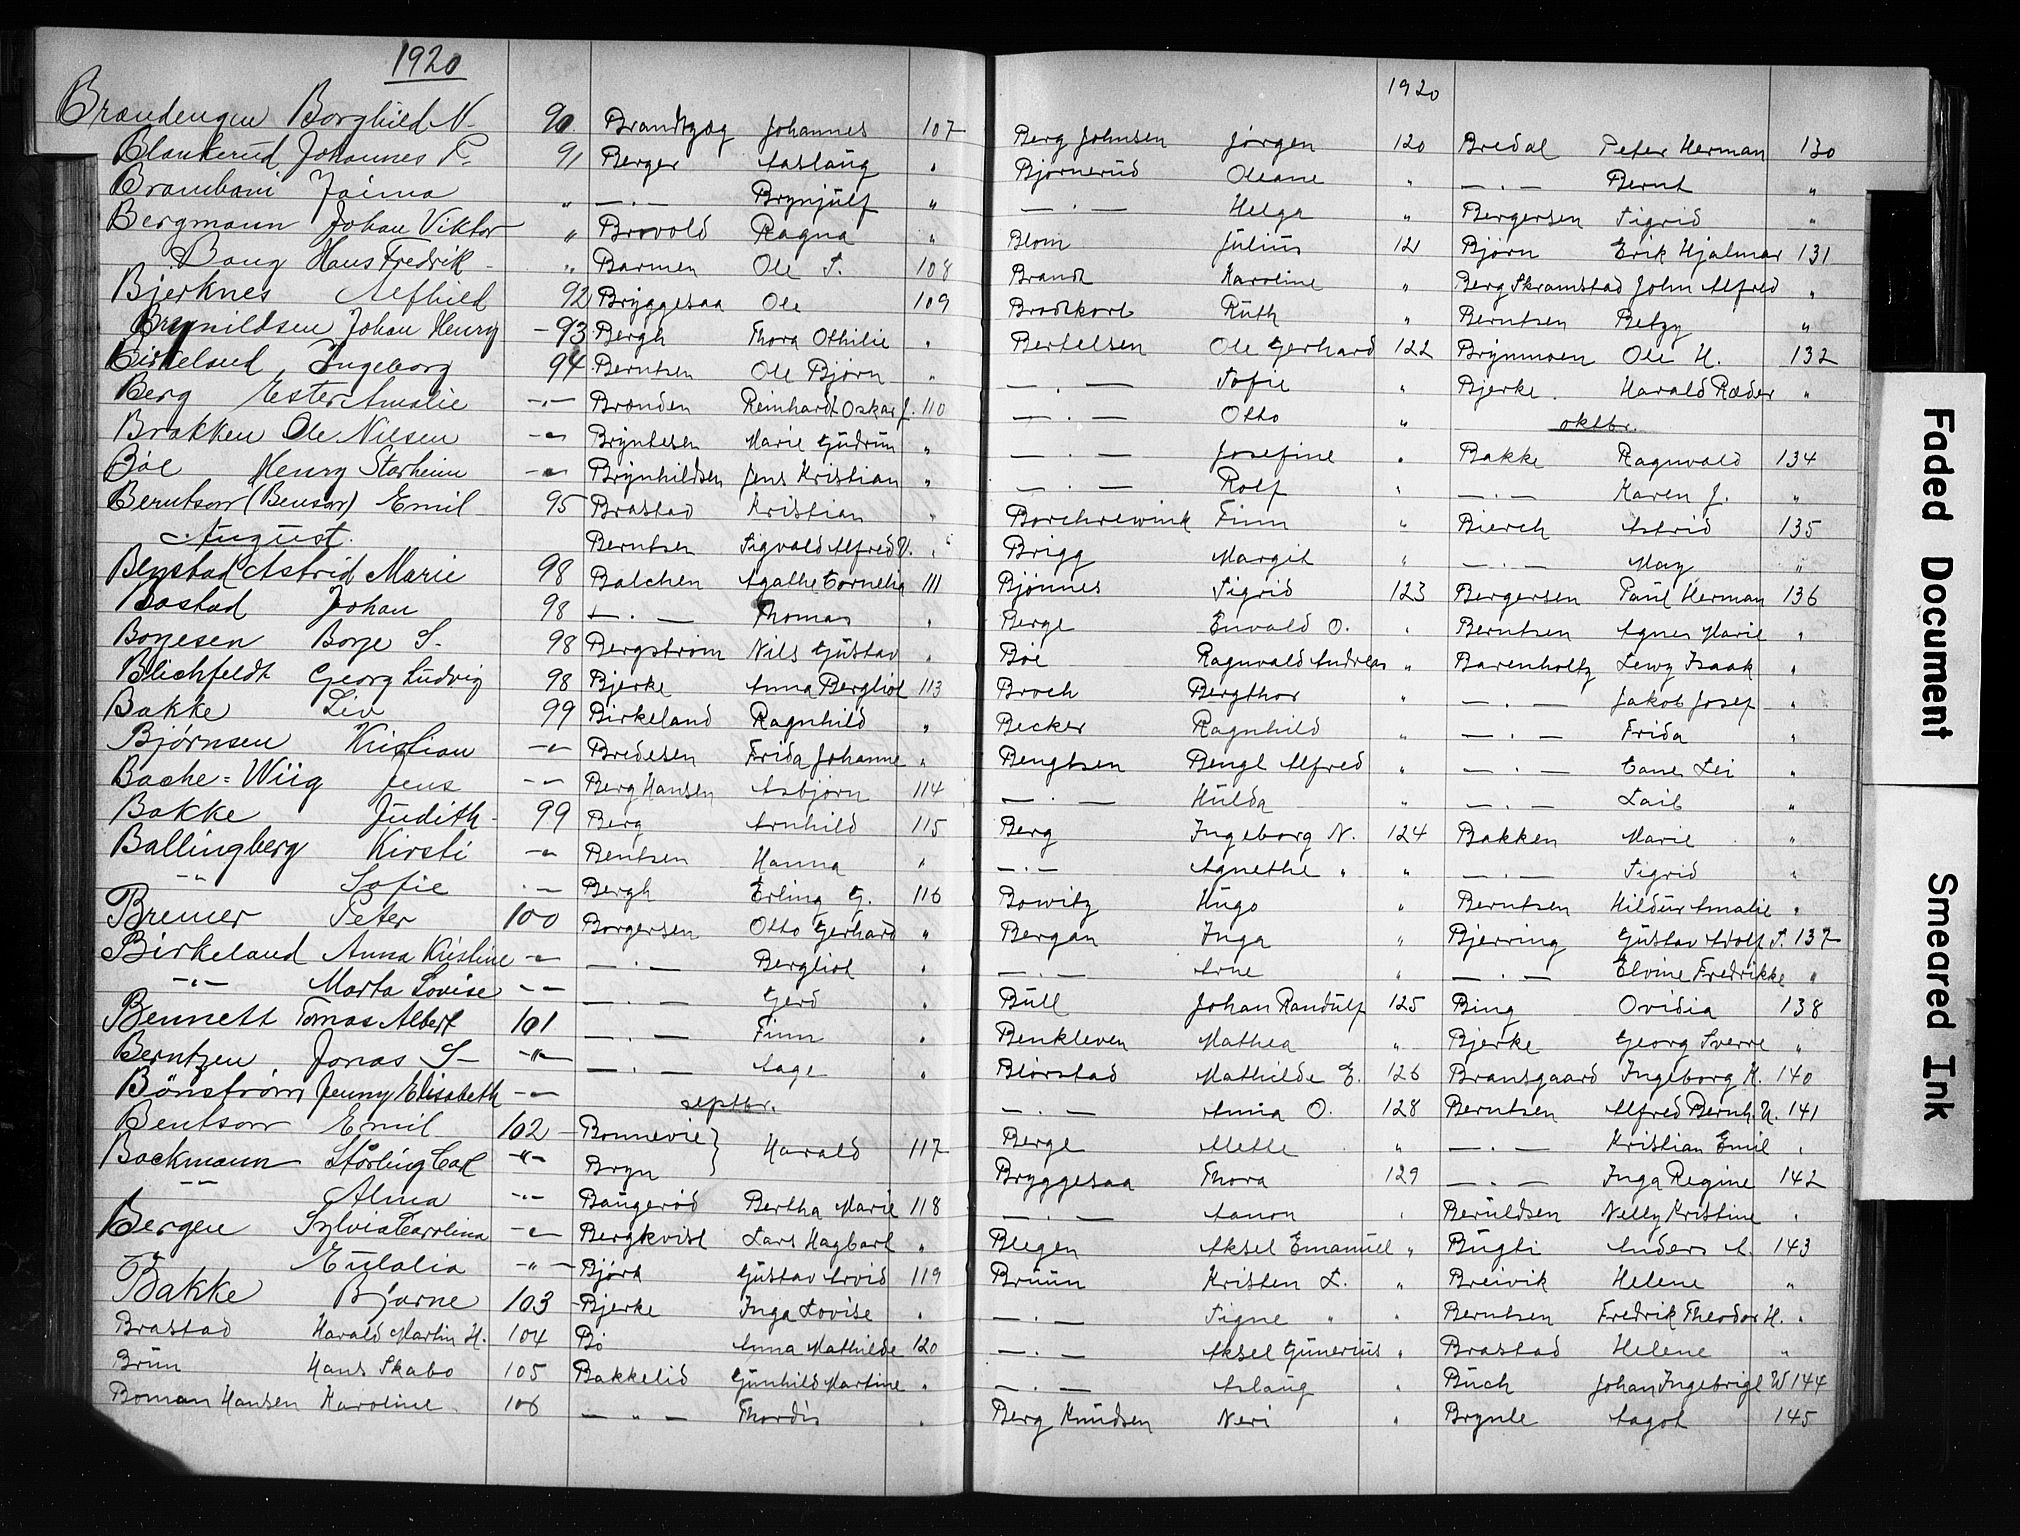 1920
Brændengen Borghild N. 90.
Blankerud, Johannes P. 91
Brambani Jaima "
Bergmann Johan Viktor "
Bang Hans Fredrik - "
Bjerknes Alfhild 92
Brynildsen Johan Henry - 93
Birkeland Ingeborg 94
Berg Ester Amalie -"-
Brakken Ole Nilsen -"-
Böe Henry Starheim -"-
Berntson (Benson) Emil 95
August.
Bergstad Astrid Marie 98
Bostad Johan 98
Borjesen Borje S. 98
Blichfeldt Georg Ludvig 98
Bakke Liv 99
Bjørnsen Kristian -"-
Bache=Wiig Jens -"-
Bakke Judith 99
Ballingberg Kirsti -"-
-"- Sofie -"-
Bremer Peter 100
Birkeland Anna Kristine -"-
-"- Marta Lovise -"-
Bennett Tomas Albert 101
Berntzen Jonas S- -"-
Bönström Jenny Elisabeth -"-
Bentson Emil 102
Backmann Störling Carl -"-
-"- Alma -"-
Bergen Sylvia Carolina -"-
Eulalia -"-
Bakke Bjarne 103
Brastad Harald Martin H. 104
Brun Hans Skabo 105
Boman Hansen Karoline 106
Brandtzæg Johannes 107
Berger Aaslaug "
— . — Brynjulf "
Brovold Ragna "
Barmen Ole T. 108
Bryggesaa Ole 109
Bergh Thora Othilie "
Berntsen Ole Bjørn "
Brenden Reinhardt Oskar J. 110
Bryntesen Marie Gudrun "
Brynhildsen Jens Kristian "
Brastad Kristian "
Berntsen Sigvald Alfred V. "
Balchen Agathe Cornelia 111
— . — Thomas "
Bergström Nils Gustav "
Bjerke Anna Bergliot 113
Birkeland Ragnhild "
Bredesen Frida Johanne "
Berg Hansen Asbjørn 114
Berg Arnhild 115
Bentsen Hanna "
Bergh Erling G. 116
Borgersen Otto Gerhard "
— . — Bergliot "
— . — Gerd "
— . — Finn "
— . — Aage "
septbr.
Bonnevie }
Bryn } Harald 117
Baugerød Bertha Marie 118
Bergkvist Lars Hagbart "
Bjørk Gustav Arvid 119
Bjerke Inga Lovise "
Bö Anna Mathilde 120
Bakkelid Gunhild Martine "
— " — Thordis "
1920
Berg Johnsen Jørgen 120
Bjørnerud Oleane "
— . — Helga "
Blom Julius 121
Brandt Karoline "
Brodtkorb Ruth "
Bertelsen Ole Gerhard 122
— . — Sofie "
— . — Otto "
— . — Josefine "
— . — Rolf "
Borchrewink Finn "
Brigg Margit "
Bjønnes Sigrid 123
Berge Envald O. "
Böe Ragnvald Andreas "
Broch Bergthor "
Becker Ragnhild "
Bengtsen Bengt Alfred "
— . — Hulda "
Berg Ingeborg N. 124
— . — Agnethe " "
Bowitz Hugo "
Bergan Inga "
— . — Arne "
Bull Johan Randulf 125
Benkleven Mathea "
Biørstad Mathilde E. 126
— . — Anna O. 128
Berge Mette "
Bryggesaa Thora 129
— . — Aanon "
Blegen Aksel Emanuel "
Bruun Kristen L. "
— . — Signe " "
— . — Aksel Gunerius "
— . — Aslaug "
Berg Knudsen Neri "
Bredal Peter Herman 130
— . — Bernt "
Bergersen Sigrid "
Bjørn Erik Hjalmar 131
Berg Skramstad John Alfred "
Berntsen Betzy "
Brynmoen Ole H. 132
Bjerke Harald Ræder "
oktbr.
Bakke Ragnvald 134
— . — Karen J. "
Bierch Astrid 135
— . — May "
Bergersen Paul Herman 136
Berntsen Agnes Marie "
Barenholtz Lewy Isaak "
— . — Jakob Josef "
— . — Frida "
— . — Cane Lei "
— . — Laib "
Bakken Marie "
— . — Sigrid "
Berntsen Hildur Amalie "
Bjerring Gustav Adolf T. 137
— . — Elvine Fredrikke "
Bing Ovidia 138
Bjerke Georg Sverre "
Bransgaard Ingeborg K. 140
Berntsen Alfred Bernh. U. 141
— . — Kristian Emil "
— . — Inga Regine 142
Beruldsen Nelly Kristine "
Bugti Anders A. 143
Breivik Helene "
Berntsen Fredrik Theodor H. "
Brastad Helene "
Buch Johan Ingebrigt W 144
Brynle Aagot 145
Faded Document
Smeared Ink